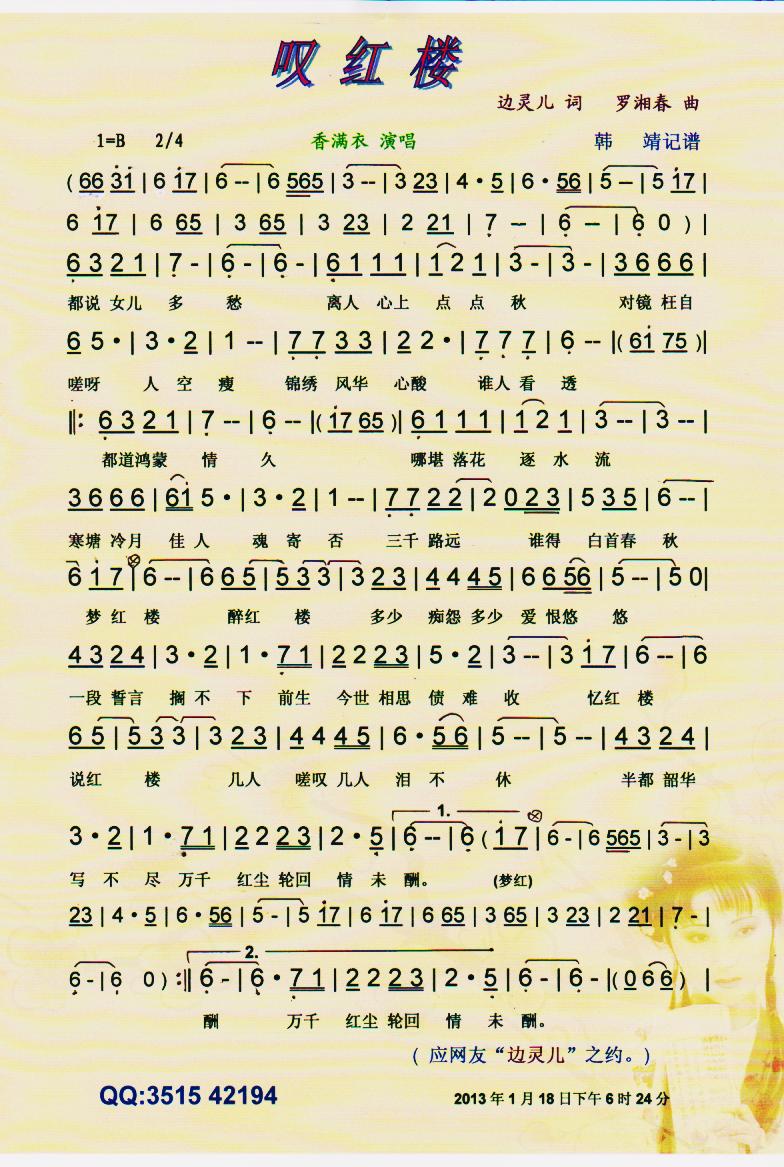 叹红楼
边灵儿 词 罗湘春 曲
1=B 2/4 香满衣 演唱 韩 靖记谱
( 66 31 | 6 17 | 6 -- | 6 565 | 3 -- | 3 23 | 4 · 5 | 6 · 56 | 5 -- | 5 17 |
6 17 | 6 65 | 3 65 | 3 23 | 2 21 | 7 -- | 6 -- | 6 0 ) |
6 3 2 1 | 7 - | 6 - | 6 - | 6 1 1 1 | 1 2 1 | 3 - | 3 - | 3 6 6 6 |
都说 女儿 多 愁 离人 心上 点 点 秋 对镜 枉自
6 5 · | 3 · 2 | 1 -- | 7 7 3 3 | 2 2 · | 7 7 7 | 6 -- | ( 61 75 ) |
嗟呀 人 空 瘦 锦绣 风华 心酸 谁人 看 透
‖: 6 3 2 1 | 7 -- | 6 -- | ( 17 65 ) | 6 1 1 1 | 1 2 1 | 3 -- | 3 -- |
都道鸿蒙 情 久 哪堪 落花 逐 水 流
3 6 6 6 | 61 5 · | 3 · 2 | 1 -- | 7 7 2 2 | 2 0 2 3 | 5 3 5 | 6 -- |
寒塘 冷月 佳 人 魂 寄 否 三千 路远 谁得 白首春 秋
6 1 7 | 6 -- | 6 6 5 | 5 3 3 | 3 2 3 | 4 4 4 5 | 6 6 5 6 | 5 -- | 5 0 |
梦 红 楼 醉红 楼 多少 痴怨 多少 爱 恨悠 悠
4 3 2 4 | 3 · 2 | 1 · 7 1 | 2 2 2 3 | 5 · 2 | 3 -- | 3 1 7 | 6 -- | 6
一段 誓言 搁 不 下 前生 今世 相思 债 难 收 忆红 楼
6 5 | 5 3 3 | 3 2 3 | 4 4 4 5 | 6 · 5 6 | 5 -- | 5 -- | 4 3 2 4 |
说红 楼 几人 嗟叹 几人 泪 不 休 半都 韶华
3 · 2 | 1 · 7 1 | 2 2 2 3 | 2 · 5 | 1. 6 -- | 6 ( 1 7 | 6 - | 6 565 | 3 - | 3
写 不 尽 万千 红尘 轮回 情 未 酬。 (梦红)
23 | 4 · 5 | 6 · 56 | 5 - | 5 17 | 6 17 | 6 65 | 3 65 | 3 23 | 2 21 | 7 - |
6 - | 6 0 ) :‖ 2. 6 - | 6 · 7 1 | 2 2 2 3 | 2 · 5 | 6 - | 6 - | ( 0 6 6 ) |
酬 万千 红尘 轮回 情 未 酬。
( 应网友“边灵儿”之约。)
QQ:3515 42194 2013 年 1 月 18 日下午 6 时 24 分